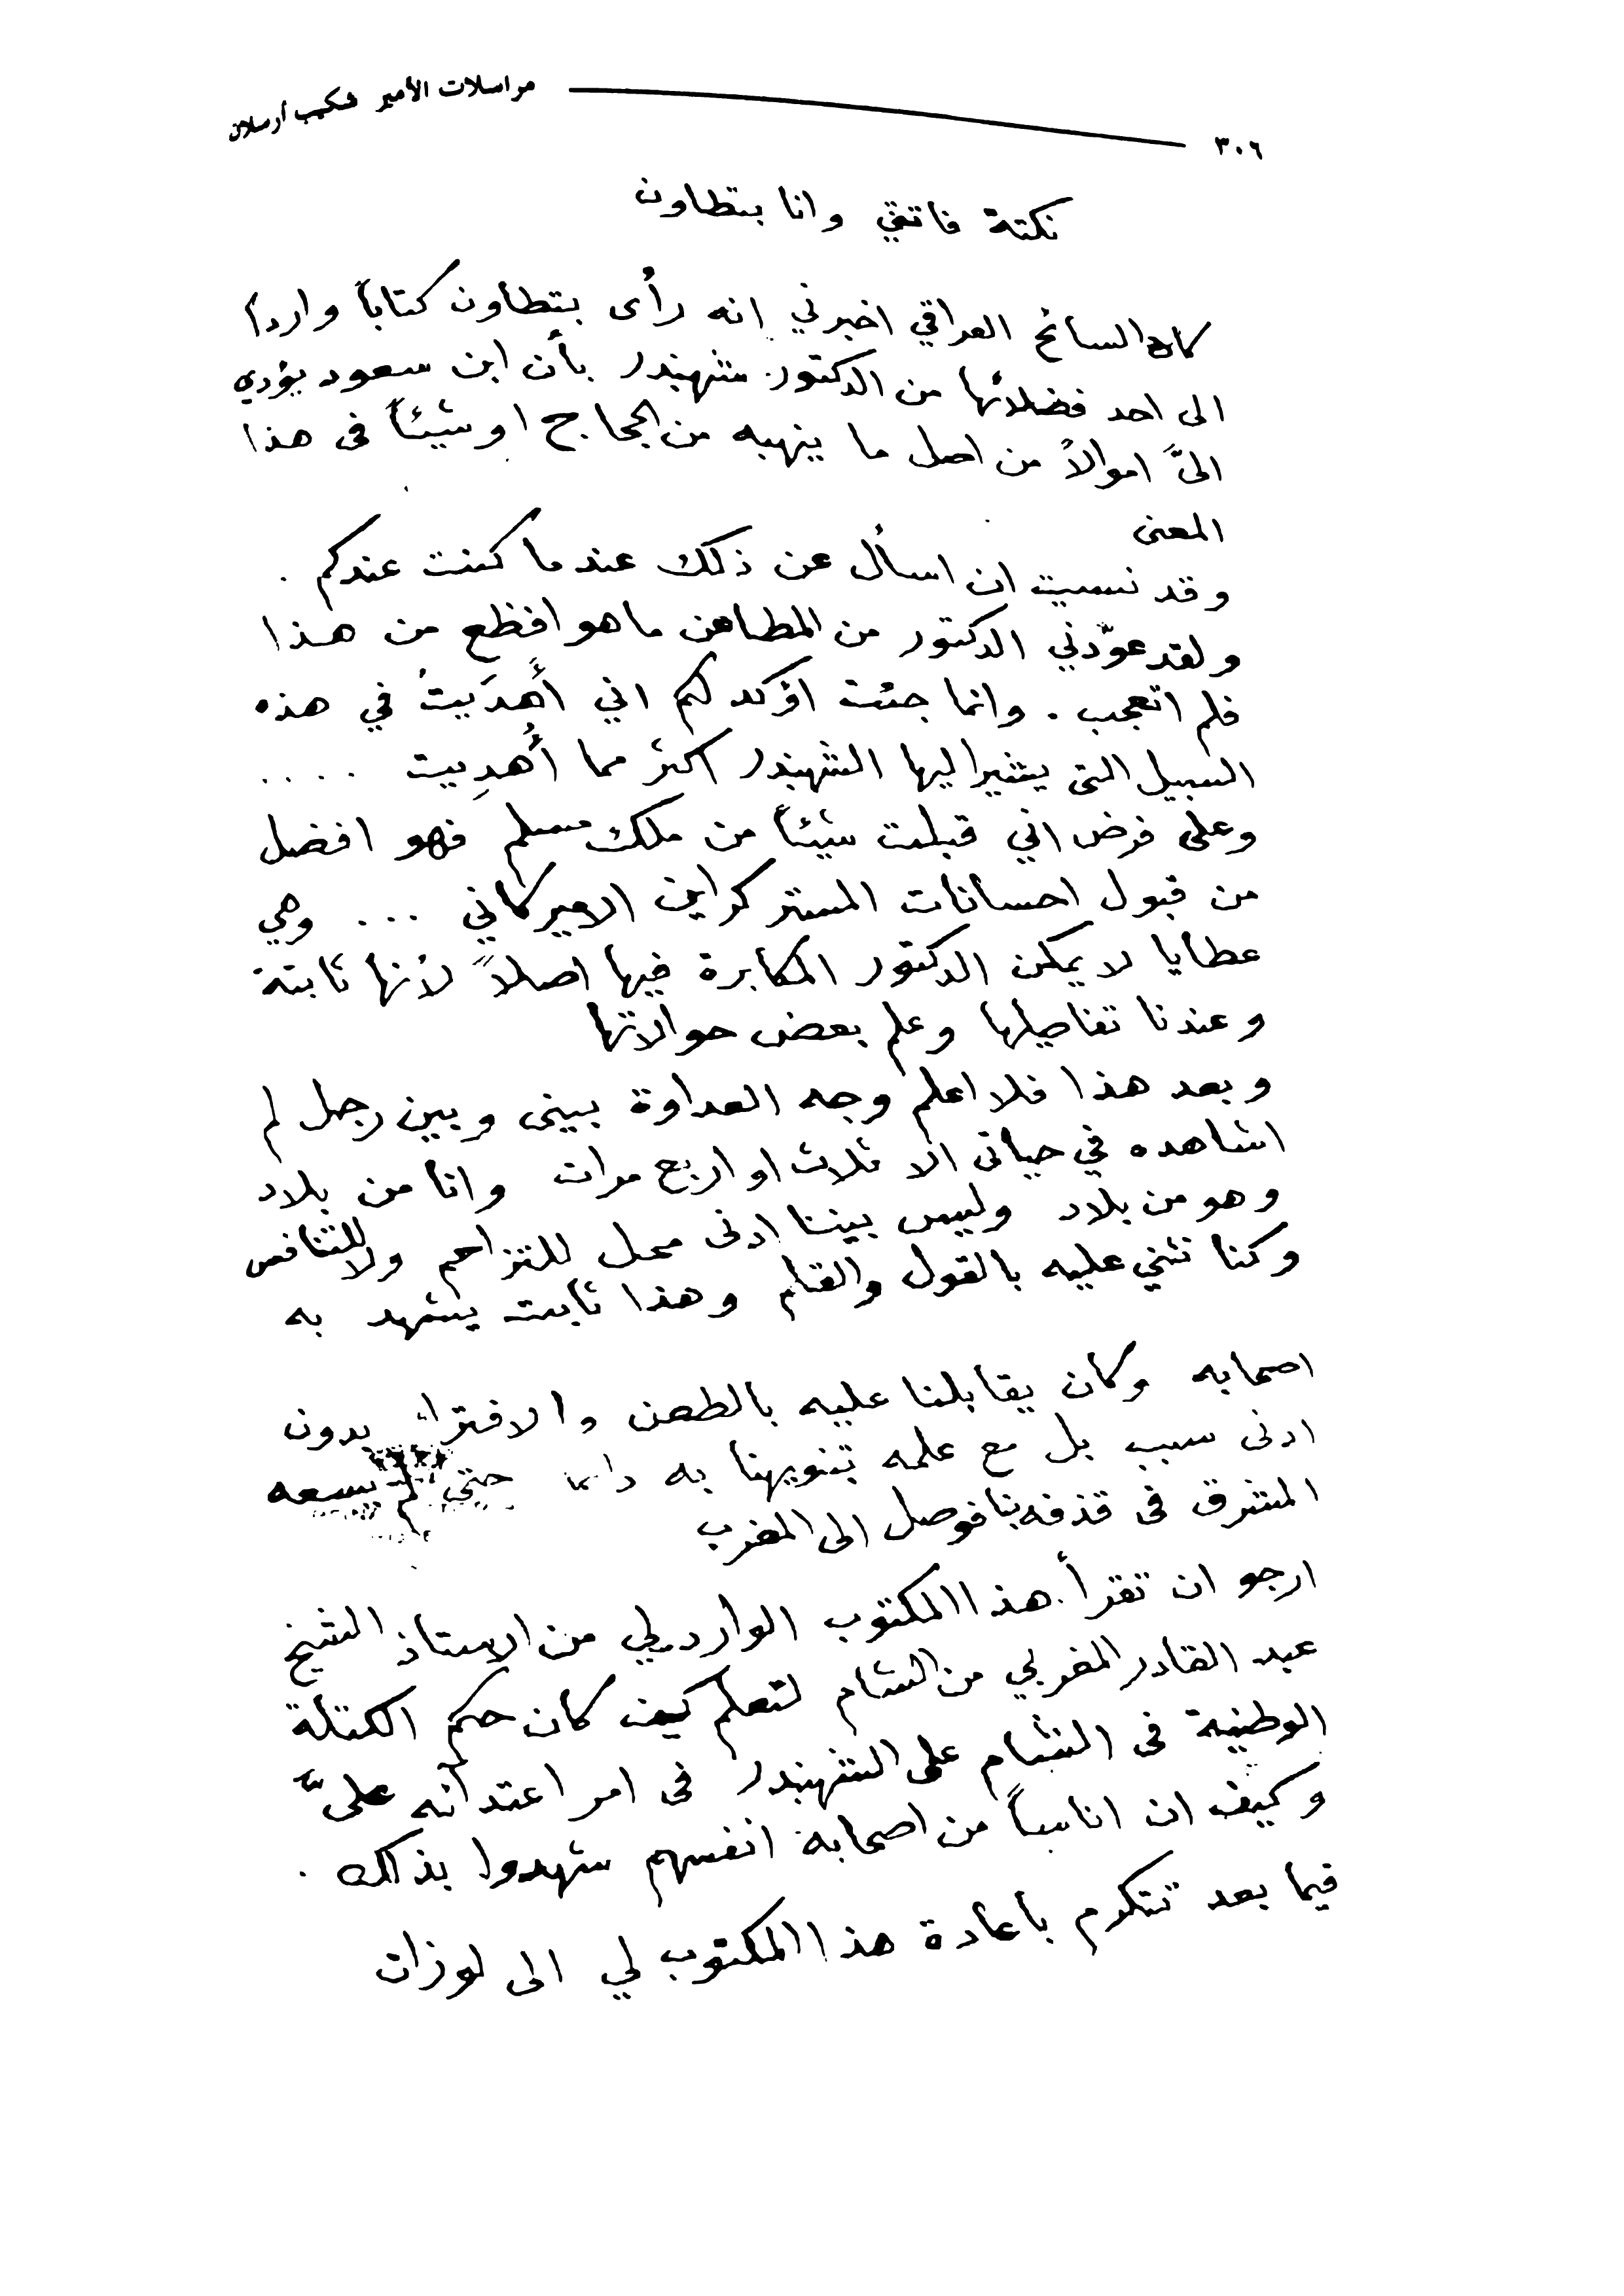 مراسلات الأمير شكيب أرسلان
٣٠٦
نكتة فاتتني وانا بتطاون
كان السائح العراقي اخبرني انه رأى بتطاون كتاباً وارداً
الى احد فضلائها من الدكتور شهبندر بأن ابن سعود يؤدي
اليَّ اموالاً من اصل ما ينهبه من الحجاج او شيئاً فى هذا
المعنى
وقد نسيت ان اسأل عن ذلك عندما كنت عندكم .
ولقد عوّدني الدكتور من المطاعن ما هو افظع من هذا
فلم اتعجب . وانما جئت اؤكد لكم اني أَهدَيتُ في هذه
السبيل التى يشير اليها الشهبندر اكثر مما أُهدِيت ....
وعلى فرض اني قبلت شيئاً من ملك مسلم فهو افضل
من قبول احسانات المستر كراين الاميركاني ... وهي
عطايا لا يمكن الدكتور المكابرة فيها اصلاً لأنها ثابتة
وعندنا تفاصيلها وعلم بعض حوالاتها
وبعد هذا فلا اعلم وجه العداوة بينى وبين رجل لم
اشاهده في حياتى الا ثلاث او اربع مرات وانا من بلاد
وهو من بلاد وليس بيننا ادنى محل للتزاحم ولا للتنافس
وكنا نثني عليه بالقول والقلم وهذا ثابت يشهد به
اصحابه وكان يقابلنا عليه بالطعن والافتراء بدون
ادنى سبب بل مع علمه بتنويهنا به دائما حتى لم يسعه
المشرق فى قذفه بنا فوصل الى المغرب
ارجو ان تقرأ هذا المكتوب الوارد لي من الاستاذ الشيخ
عبد القادر المغربي من الشام لتعلم كيف كان حكم الكتلة
الوطنية فى الشام على الشهبندر فى امر اعتدائه علىَّ
وكيف ان اناساً من اصحابه انفسهم شهدوا بذلك .
فيما بعد تتكرم باعادة هذا المكتوب لي الى لوزان